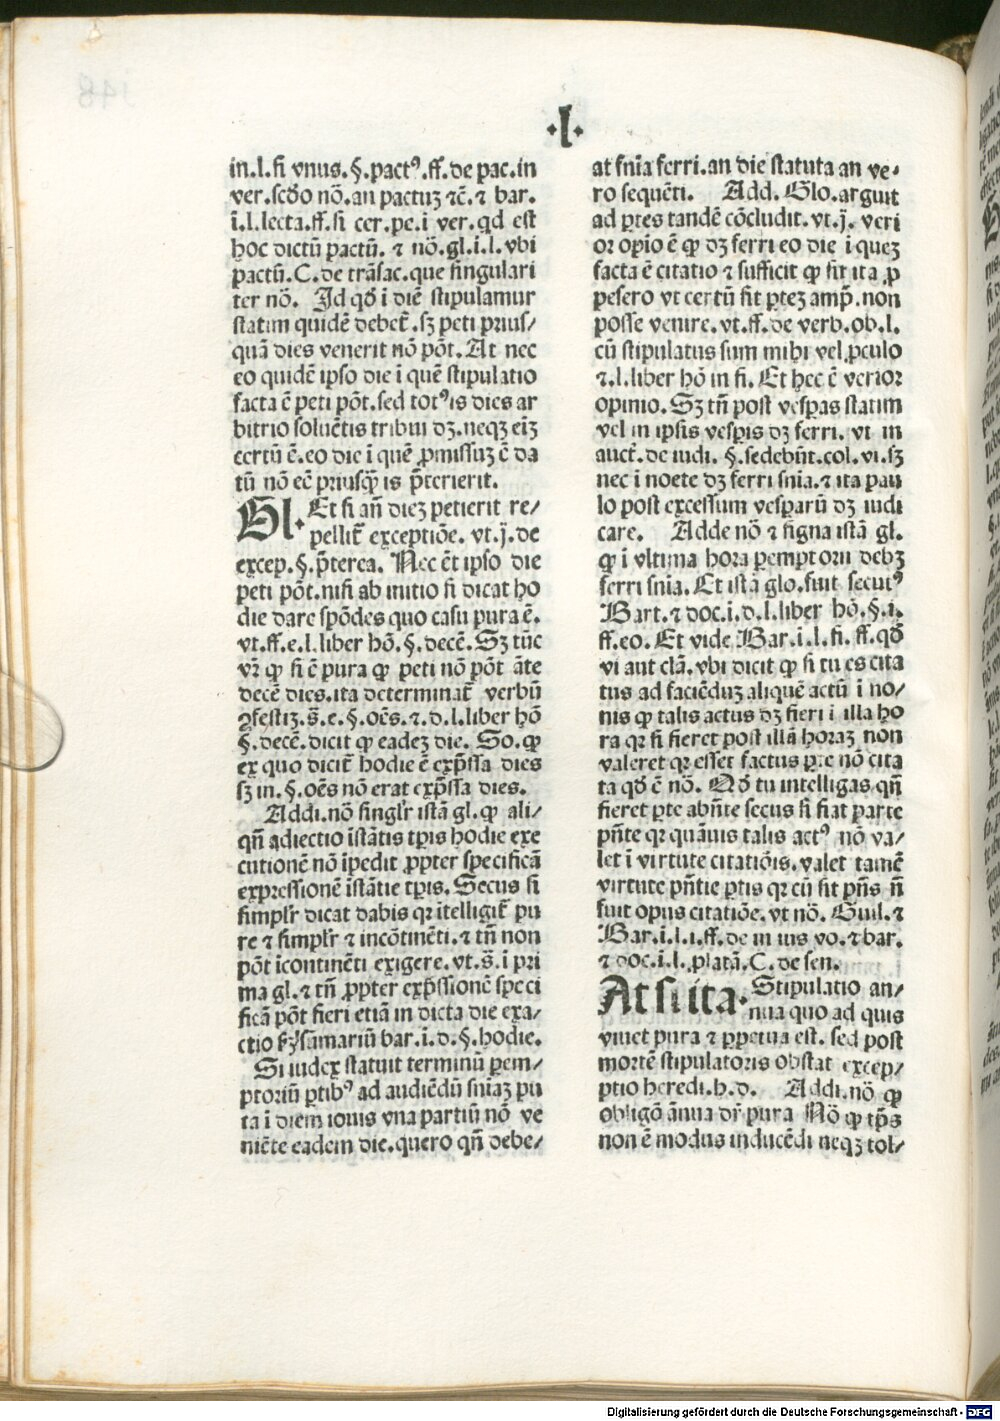 ·I·
in.l.si vnus.§.pactꝰ.ff.de pac.in
ver.scḋo nō.an pactuꝫ ⁊c̄.⁊ bar.
ī.l.lecta.ff.si cer.pe.i ver.qd est
hoc dictū pactū.⁊ nō.gl.i.l.vbi
pactū.C.de trāsac.que singulari
ter nō. Id qḋ i diē stipulamur
statim quidē debet̄.sꝫ peti prius/
quā dies venerit nō pōt.At nec
eo quidē ipso die i quē stipulatio
facta ē peti pōt.sed totꝰis dies ar
bitrio soluētis tribui dꝫ.neqꝫ eīꝫ
certū ē.eo die i quē ꝓmissuꝫ ē da
tū nō eē priusqꝫ is p̄terierit.
Gl. Et si an̄ dieꝫ petierit re/
pellit̄ exceptiōe. vt.j.de
excep.§.p̄terea. Nec ēt ipso die
peti pōt.nisi ab initio si dicat ho
die dare spōdes quo casu pura ē.
vt.ff.e.l.liber hō.§.decē.Sꝫ tūc
vr̄ ꝙ si ē pura ꝙ peti nō pōt āte
decē dies.ita determinat̄ verbū
ꝯfestiꝫ.s̄.e.§.oēs.⁊.d.l.liber hō
§.decē.dicit ꝙ eadeꝫ die. So.ꝙ
ex quo dicit̄ hodie ē exp̄ssa dies
sꝫ in.§.oēs nō erat exp̄ssa dies.
Addi.nō singlr̄ istā gl.ꝙ ali/
qn̄ adiectio īstātis tp̄is hodie exe
cutionē nō īpedit ꝓpter specificā
expressionē īstātie tp̄is.Secus si
simplr̄ dicat dabis qꝛ ītelligit̄ pu
re ⁊ simplr̄ ⁊ incōtinēti.⁊ tn̄ non
pōt īcontinēti exigere.vt.s̄.i pri
ma gl.⁊ tn̄ ꝓpter exp̄ssionē speci
ficā pōt fieri etiā in dicta die exa/
ctio ẜm sāmariū bar.i.d.§.hodie.
Si iudex statuit terminū ꝑem/
ptoriū ꝑtibꝰ ad audiēdū sn̄iaꝫ pu
ta i diem iouis vna partiū nō ve
niēte eadem die.quero qn̄ debe/
at sn̄ia ferri.an die statuta an ve/
ro sequēti. Add. Glo.arguit
ad ꝑtes tandē cōcludit.vt.j. veri
or opio ē ꝙ dꝫ ferri eo die i queꝫ
facta ē citatio ⁊ sufficit ꝙ sit ita ꝓ
pesero vt certū sit ꝑteꝫ amp̄.non
posse venire.vt.ff.de verb.ob.l.
cū stipulatus sum mihi vel ꝓculo
⁊.l.liber hō in fi. Et hec ē verior
opinio. Sꝫ tn̄ post vesꝑas statim
vel in ipsis vesꝑis dꝫ ferri. vt in
auct̄.de iudi. §.sedebūt.col.vi.sꝫ
nec i nocte dꝫ ferri sn̄ia.⁊ ita pau
lo post excessum vesꝑarū dꝫ iudi
care. Adde nō ⁊ signa istā gl.
ꝙ i vltima hora ꝑemptorii debꝫ
ferri sn̄ia. Et istā glo.fuit secutꝰ
Bart.⁊ doc.i.d.l.liber hō.§.i.
ff.eo. Et vide Bar.i.l.fi.ff.qḋ
vi aut clā.vbi dicit ꝙ si tu es cita
tus ad faciēduꝫ aliquē actū i no/
nis ꝙ talis actus dꝫ fieri i illa ho
ra qꝛ si fieret post illā horaꝫ non
valeret qꝛ esset factus ꝑte nō cita
ta qḋ ē nō. Nḋ tu intelligas qn̄
fieret ꝑte abn̄te secus si fiat parte
pn̄te qꝛ quāuis talis actꝰ nō va/
let i virtute citatiōis.valet tamē
virtute pn̄tie ꝑtis qꝛ cū sit pn̄s n̄
fuit opus citatiōe.vt nō. Guil.⁊
Bar.i.l.i.ff.de in ius vo.⁊ bar.
⁊ doc.i.l.ꝓlatā.C.de sen.
At si ita. Stipulatio an/
nua quo ad quis
viuet pura ⁊ ꝑpetua est. sed post
mortē stipulatoris obstat excep/
ptio heredi.h.d. Addi.nō ꝙ
obligō ānua dr̄ pura Nō ꝙ tp̄s
non ē modus inducēdi neqꝫ tol/
Digitalisierung gefördert durch die Deutsche Forschungsgemeinschaft - DFG